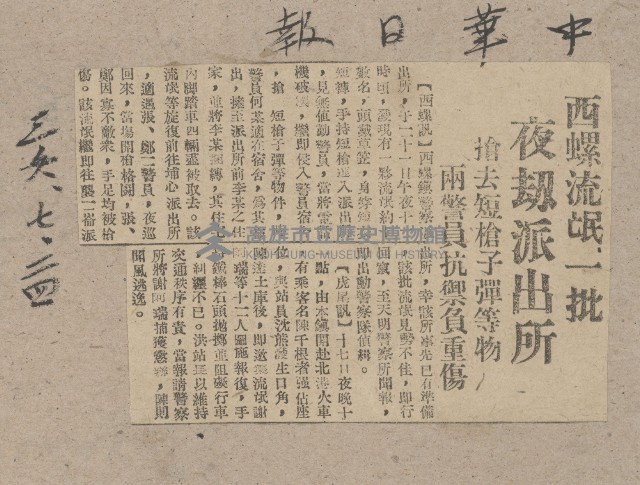 中華日報
三六、七、二四
西螺流氓一批
夜劫派出所
搶去短槍子彈等物
兩警員抗禦負重傷
【西螺訊】西螺鎮警察
出所,于二十一日午夜十
時頃,發現有一夥流氓約
數名,頭戴草笠,身穿短
短褲,手持短槍進入派出
,見無值勤警員,當將電話
機破壞,繼即侵入警員宿
,搶 短槍子彈等物件,
警員何某適在宿舍,為其
出,擄至派出所前李某之住
家,並將李某綑縛,其住
內脚踏車四輛並被取去。該
流氓等旋復前往埔心派出所
,適遇張、鄭二警員,夜巡
回來,當場開槍格鬪,張、
鄭因寡不敵衆,手足均被槍
傷。該流氓繼即往襲二崙派
所,幸該所事先已有準備
,該批流氓見勢不佳,即行
回竄,至天明警察所聞報,
即出動警察隊偵緝。
【虎尾訊】十七日夜晚十
點,由本鎮開赴北港火車
,有乘客名陳千根者強佔座
位,與站員沈熊波生口角,
陳達土庫後,即邀集流氓謝
阿瑞等十二人圖施報復,手
鐵棒石頭拋擲並阻礙行車
糾纏不已。洪站長以維持
交通秩序有責,當報請警察
所將謝阿瑞捕獲懲辦,陳則
聞風逃逸。
高雄市立歷史博物館
KAOHSIUNG MUSEUM OF HISTORY